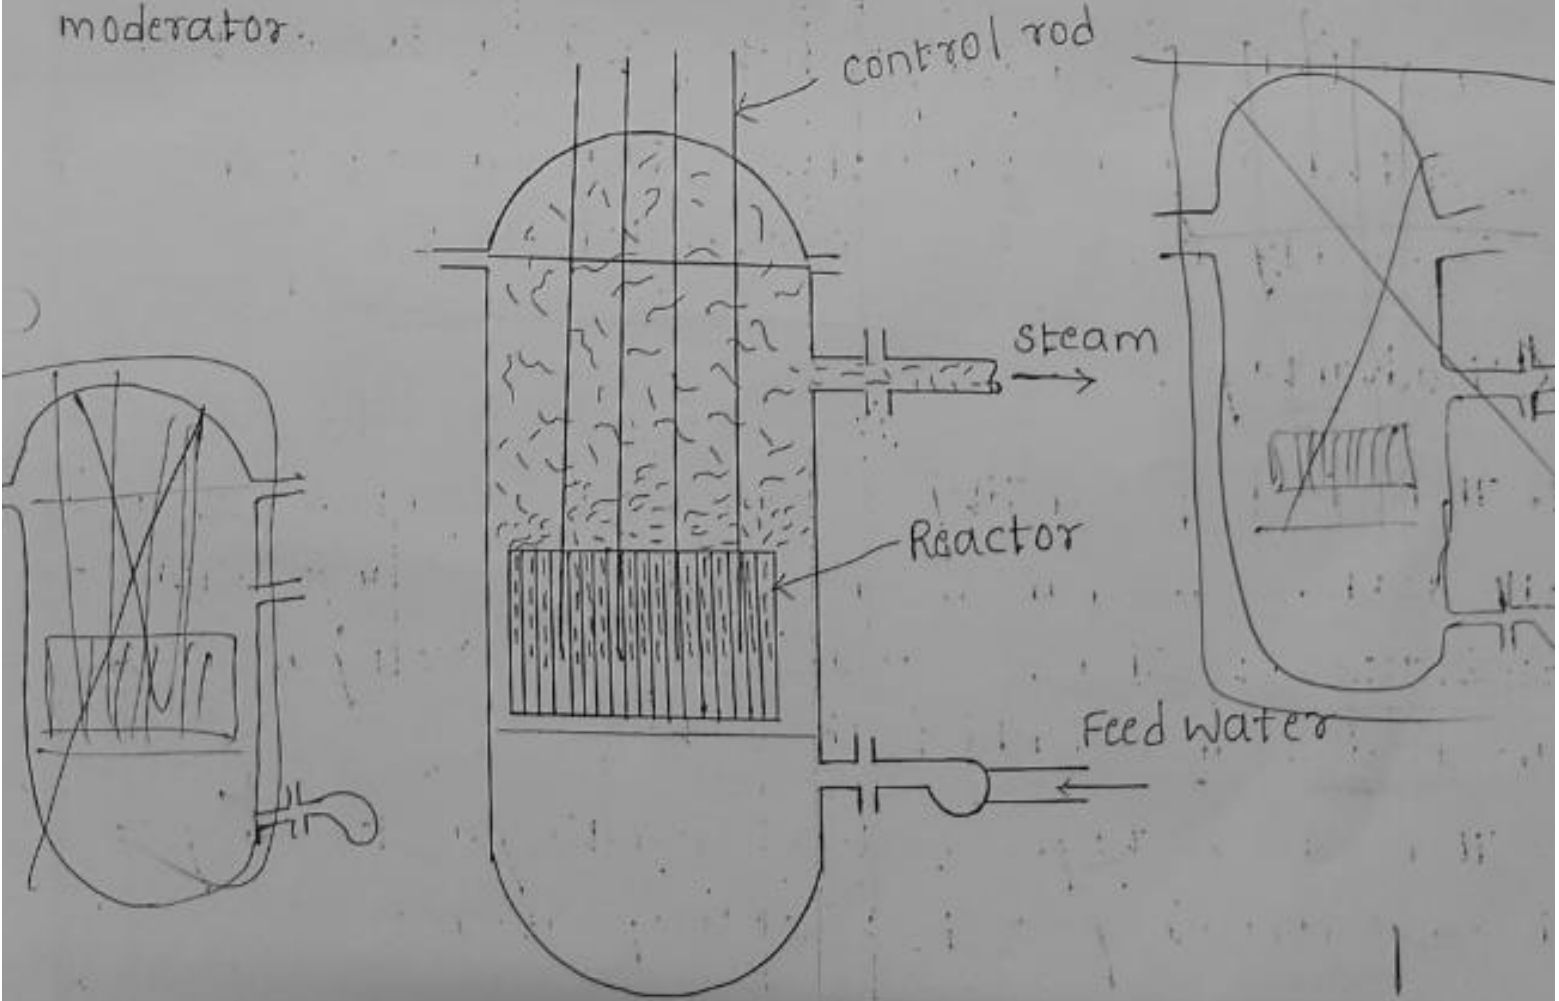 moderator.
control rod
steam
Reactor
Feed Water